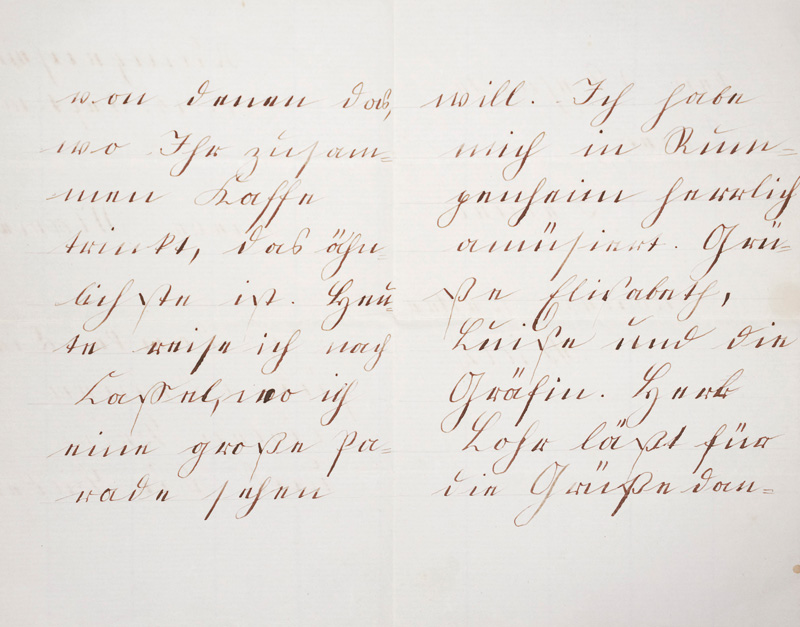 von denen das,
wo Ihr zusam-
men Kaffe
trinkt, das ähn-
lichste ist. Heu-
te reise ich nach
Kassel, wo ich
eine große Pa-
rade sehen
will. Ich habe
mich in Rum-
penheim herrlich
amüsiert. Grü-
ße Elisabeth,
Luise und die
Gräfin. Herr
Lohr läßt für
die Grüße dan-